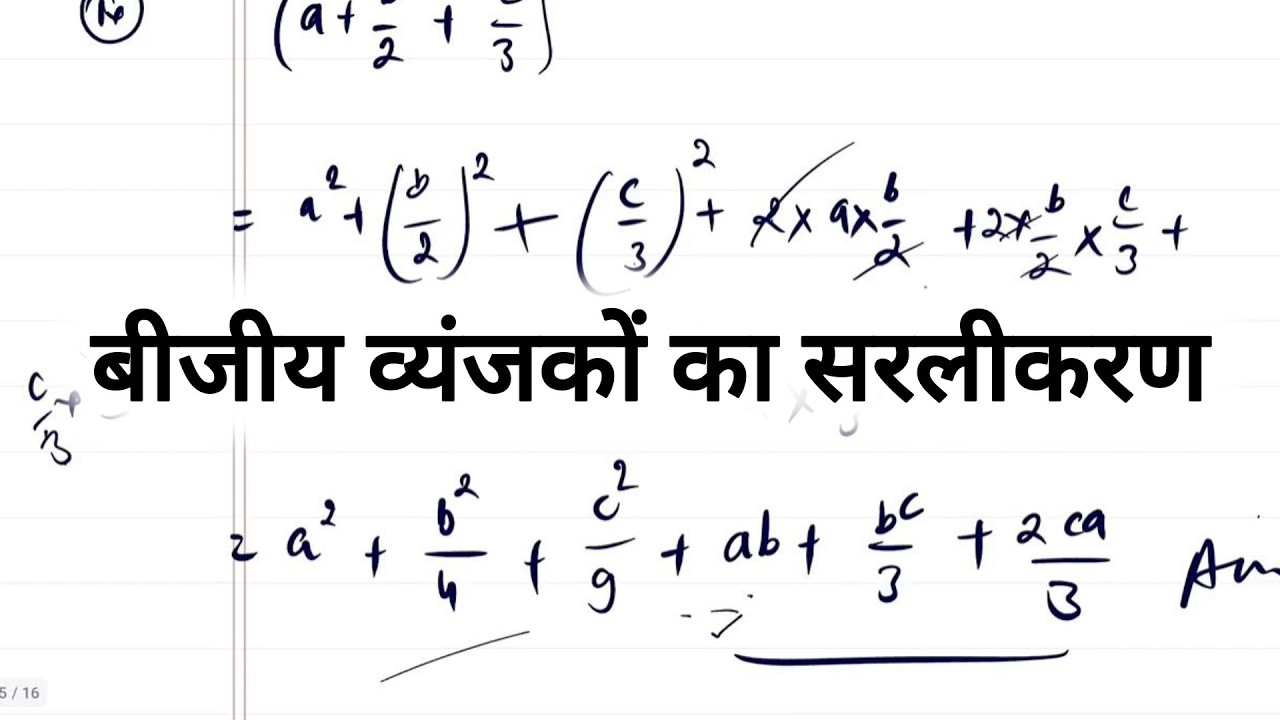 (a + b/2 + c/3)
= a² + (b/2)² + (c/3)² + 2 × a × b/2 + 2 × b/2 × c/3 +
बीजीय व्यंजकों का सरलीकरण
c/3
= a² + b²/4 + c²/9 + ab + bc/3 + 2ca/3
5 / 16